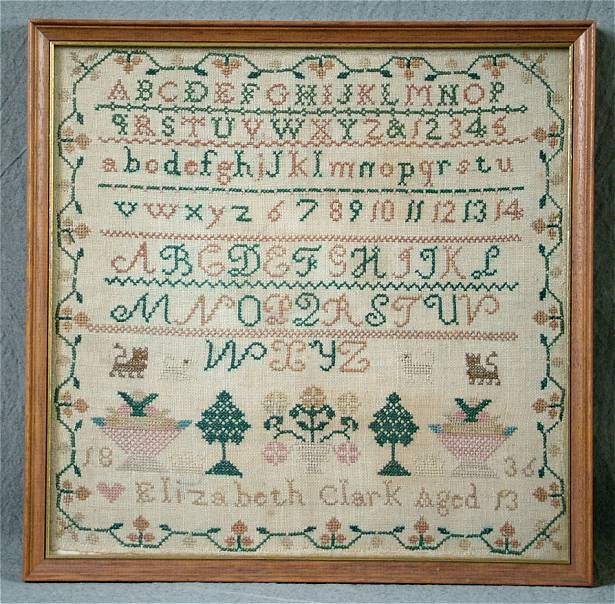 ABCDEFGHIJKLMNOP
QRSTUVWXYZ&12345
abcdefghijklmnopqrstu
vwxyz67891011121314
ABCDEFGHIJKL
MNOPQRSTUV
WXYZ
18 36
Elizabeth Clark Aged 13